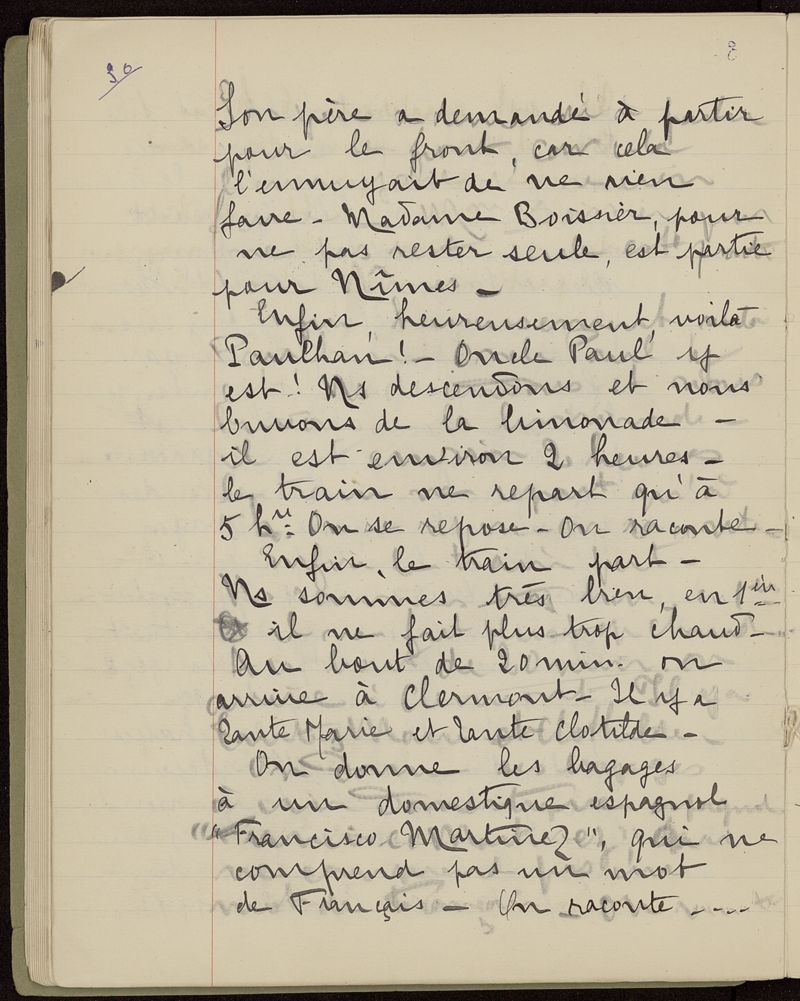 8
30
Son père a demandé à partir
pour le front, car cela
l'ennuyait de ne rien
faire - Madame Boissier, pour
ne pas rester seule, est partie
pour Nîmes -
Enfin, heureusement, voilà
Paulhan! - Oncle Paul y
est! Ns descendons et nous
buvons de la limonade -
il est environ 2 heures -
le train ne repart qu'à
5 hres. On se repose - On raconte -
Enfin, le train part -
Ns sommes très bien, en 1ère
il ne fait plus trop chaud -
Au bout de 20 min. on
arrive à Clermont - Il y a
Tante Marie et Tante Clotilde -
On donne les bagages
à un domestique espagnol
"Francisco Martinez", qui ne
comprend pas un mot
de Français - On raconte ....